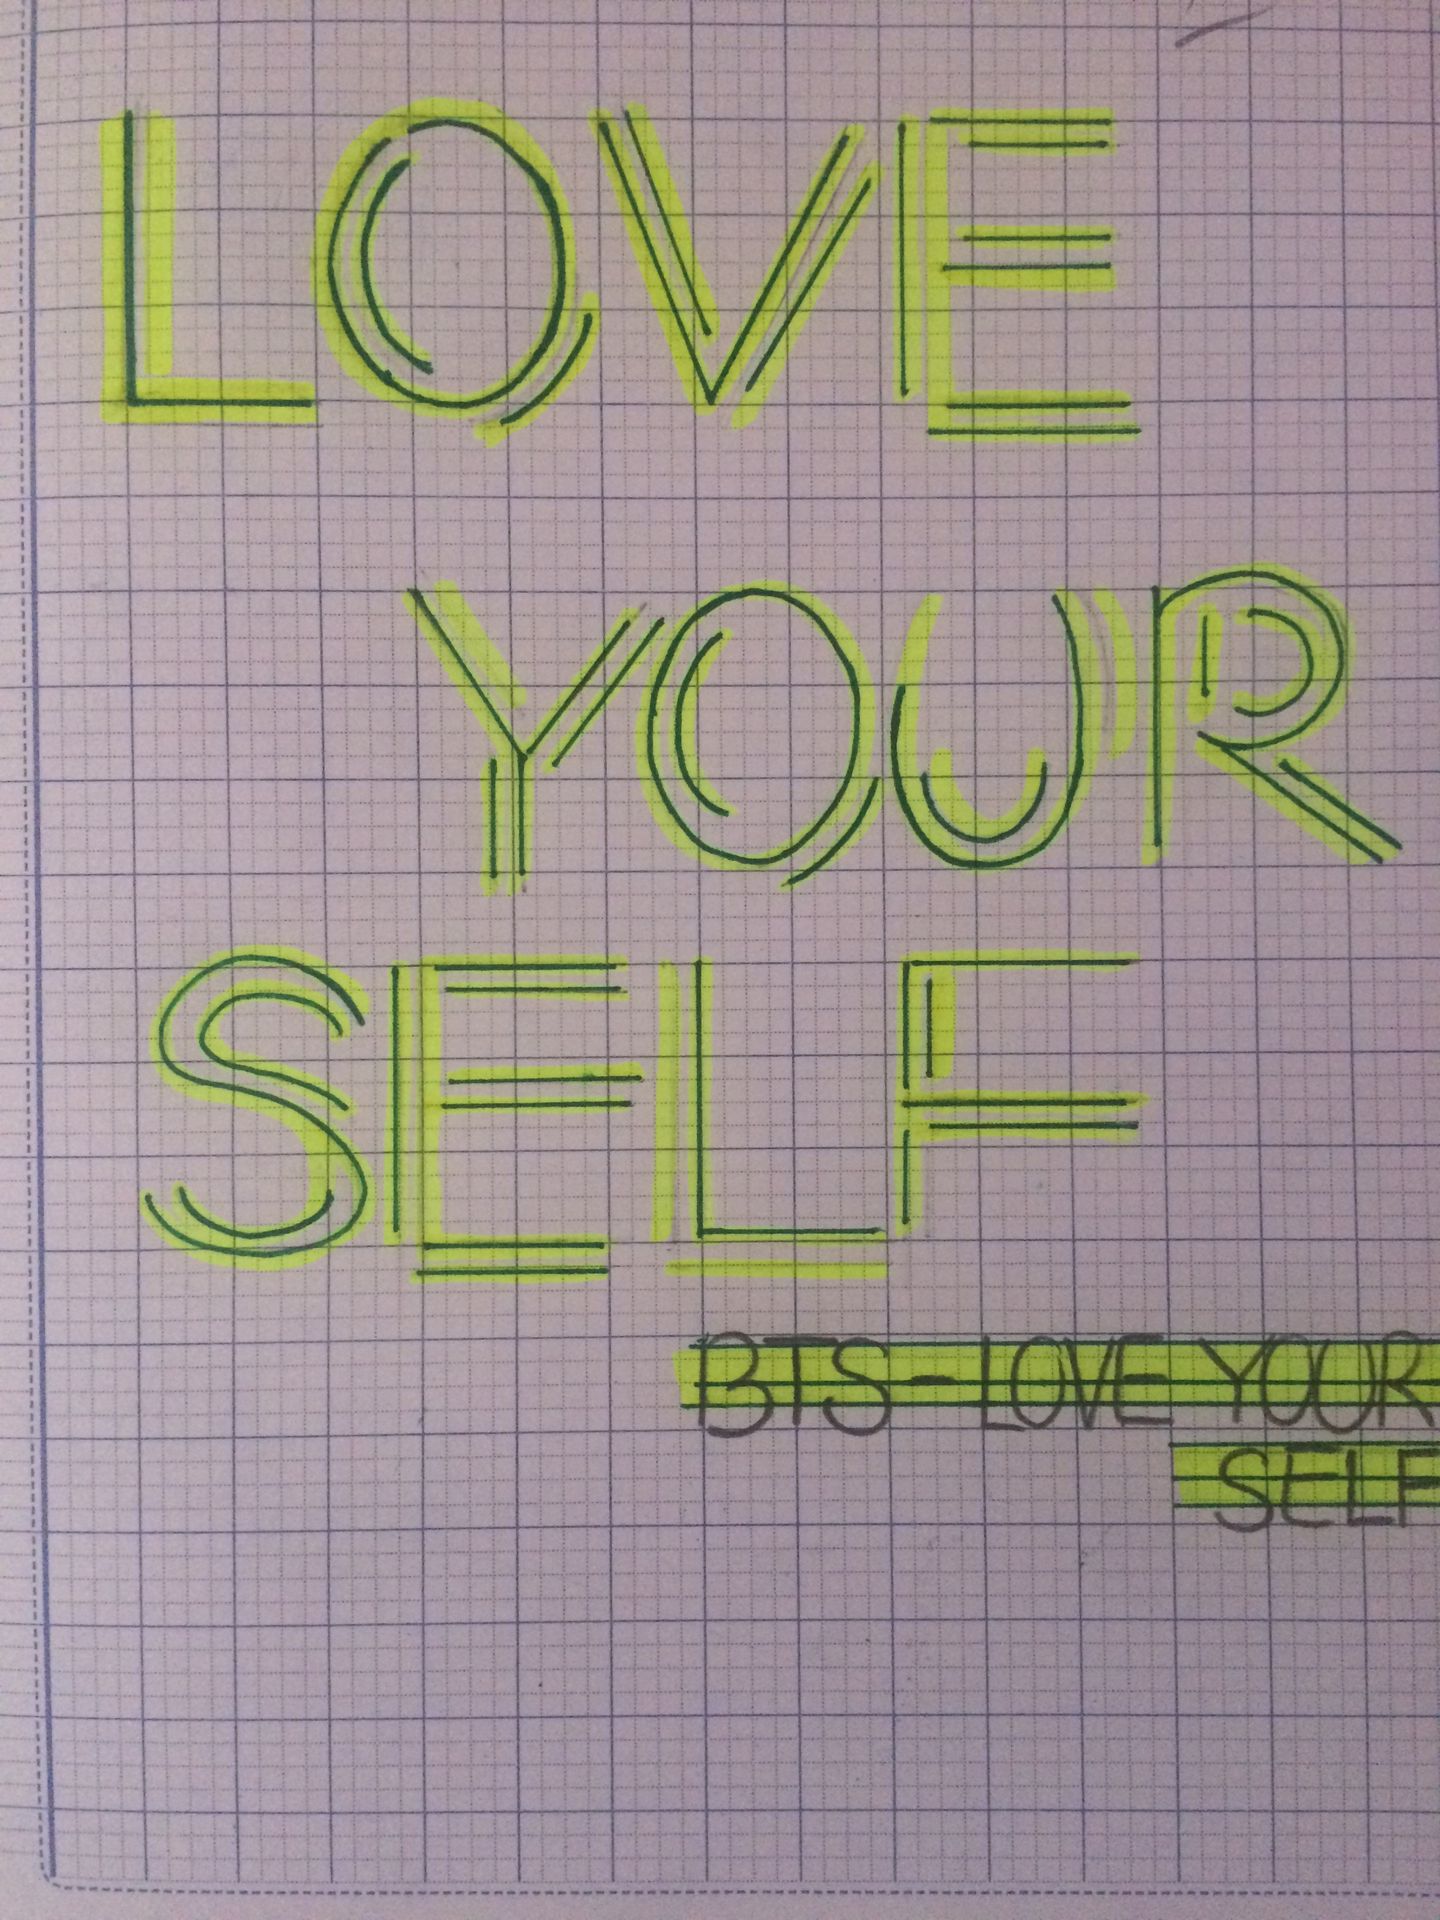 LOVE
YOUR
SELF
BTS - LOVE YOUR
SELF